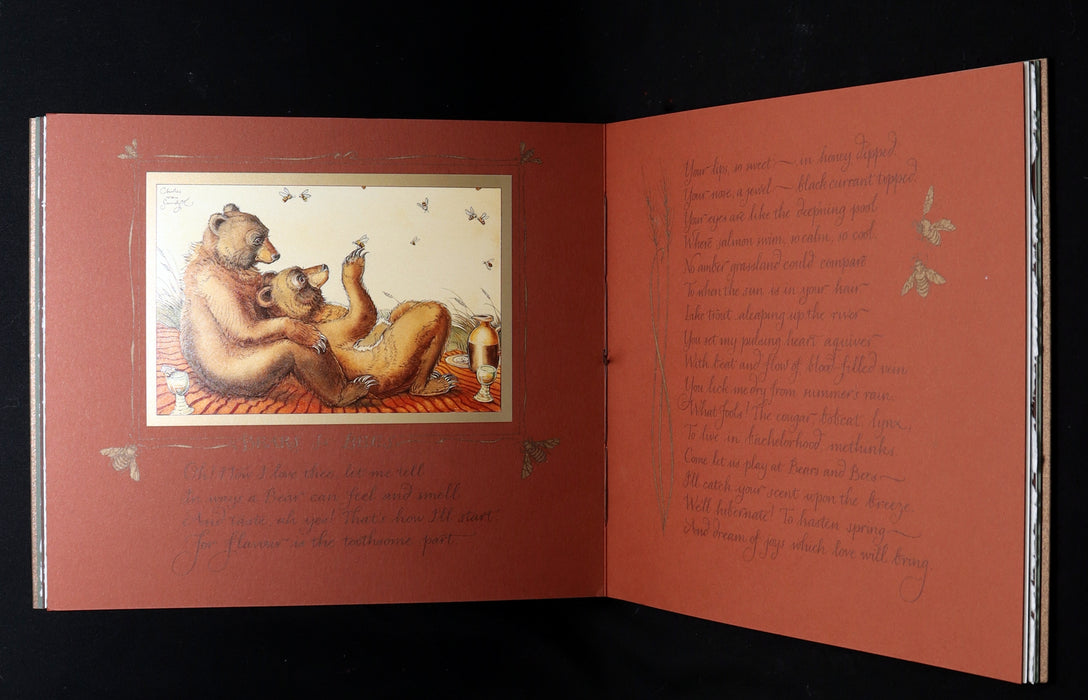 Charles
van
Sandwyk
Oh! How I love thee, let me tell
In ways a Bear can feel and smell
And taste, oh yes! That's how I'll start
For flavour is the toothsome part –
Your lips, so sweet – in honey dipped
Your nose, a jewel – black currant tipped
Your eyes are like the deep'ning pool
Where salmon swim, so calm, so cool.
No amber grassland could compare
To when the sun is in your hair
Like trout aleaping up the river
You set my pulsing heart aquiver
With beat and flow of blood-filled vein
You lick me dry from summer's rain.
What fools! The cougar, bobcat, lynx,
To live in bachelorhood methinks.
Come let us play at Bears and Bees –
I'll catch your scent upon the breeze
We'll hibernate! To hasten spring –
And dream of joys which love will bring.